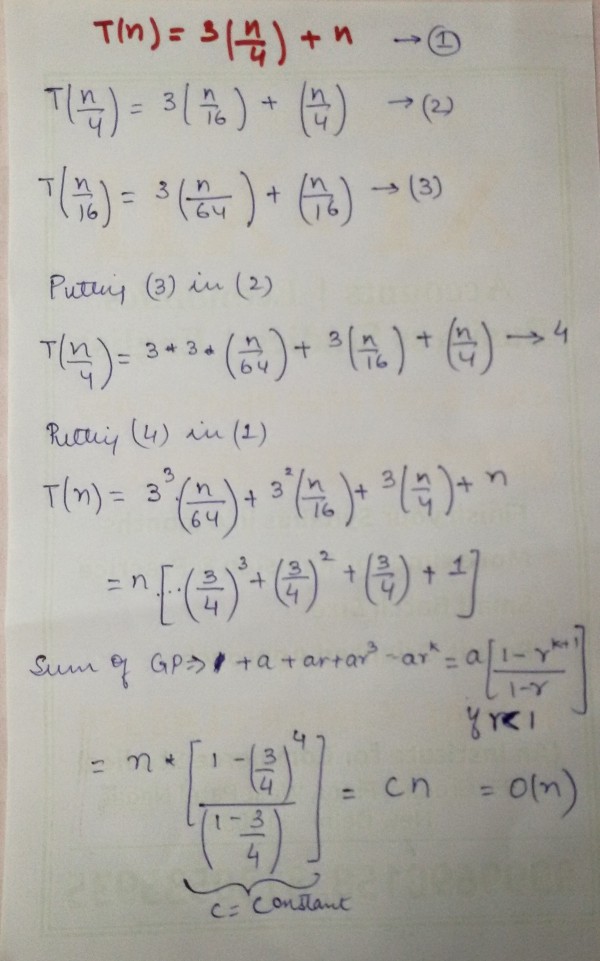 T(n) = 3(n/4) + n → ①
T(n/4) = 3(n/16) + (n/4) → (2)
T(n/16) = 3(n/64) + (n/16) → (3)
Putting (3) in (2)
T(n/4) = 3 * 3 * (n/64) + 3(n/16) + (n/4) → 4
Putting (4) in (1)
T(n) = 3³·(n/64) + 3²(n/16) + 3(n/4) + n
= n [··(3/4)³ + (3/4)² + (3/4) + 1]
Sum of GP ⇒ + a + ar + ar³ - ar^k = a[(1 - r^(k+1))/(1 - r)]
if r < 1
= n * [(1 - (3/4)⁴)/(1 - 3/4)] = cn = O(n)
c = constant